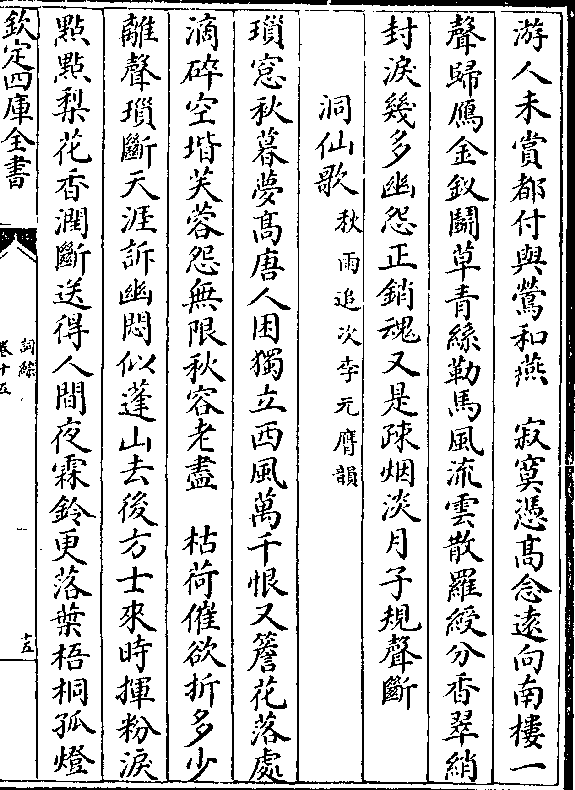 游人未賞都付與鶯和燕　寂寞憑髙念逺向南樓一
聲歸鴈金釵鬬草青絲勒馬風流雲散羅綬分香翠綃
封淚幾多幽怨正銷魂又是疎烟淡月子規聲斷
洞仙歌　秋雨追次李元膺韻
瑣窓秋暮夢髙唐人困獨立西風萬千恨又簷花落處
滴碎空堦芙蓉怨無限秋容老盡　枯荷催欲折多少
離聲瑣斷天涯訴幽悶似蓬山去後方士來時揮粉淚
點點棃花香潤斷送得人間夜霖鈴更落葉梧桐孤燈
欽定四庫全書
詞綜
卷十五
十五